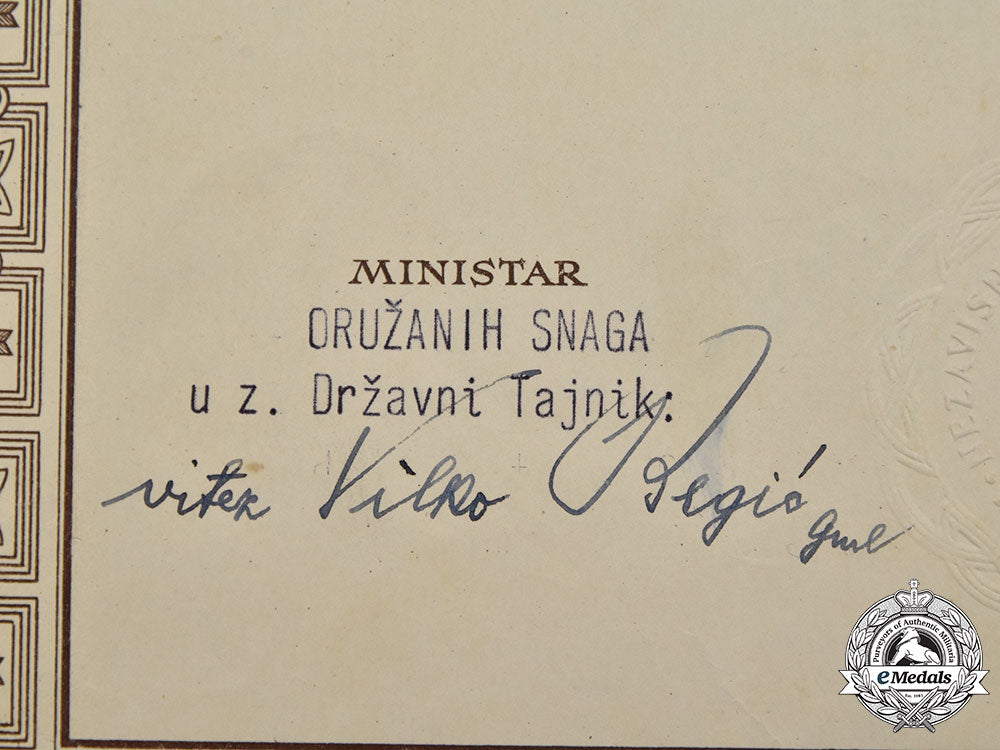 MINISTAR
ORUŽANIH SNAGA
u z. Državni Tajnik:
vitez Vilko Begić
gml
NEZAVIS
Purveyors of Authentic Militaria
eMedals